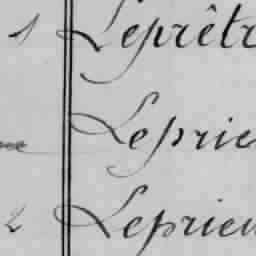 1 Leprêtr
Leprie
2 Leprieu